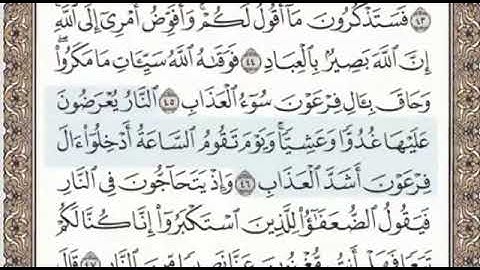 ٤٣ فَسَتَذْكُرُونَ مَآ أَقُولُ لَكُمْ ۚ وَأُفَوِّضُ أَمْرِىٓ إِلَى ٱللَّهِ ۚ
إِنَّ ٱللَّهَ بَصِيرٌۢ بِٱلْعِبَادِ ٤٤ فَوَقَىٰهُ ٱللَّهُ سَيِّـَٔاتِ مَا مَكَرُوا۟ ۖ
وَحَاقَ بِـَٔالِ فِرْعَوْنَ سُوٓءُ ٱلْعَذَابِ ٤٥ ٱلنَّارُ يُعْرَضُونَ
عَلَيْهَا غُدُوًّا وَعَشِيًّا ۖ وَيَوْمَ تَقُومُ ٱلسَّاعَةُ أَدْخِلُوٓا۟ ءَالَ
فِرْعَوْنَ أَشَدَّ ٱلْعَذَابِ ٤٦ وَإِذْ يَتَحَآجُّونَ فِى ٱلنَّارِ
فَيَقُولُ ٱلضُّعَفَـٰٓؤُا۟ لِلَّذِينَ ٱسْتَكْبَرُوٓا۟ إِنَّا كُنَّا لَكُمْ
تَبَعًا فَهَلْ أَنتُم مُّغْنُونَ عَنَّا نَصِيبًا مِّنَ ٱلنَّارِ ٤٧ قَالَ